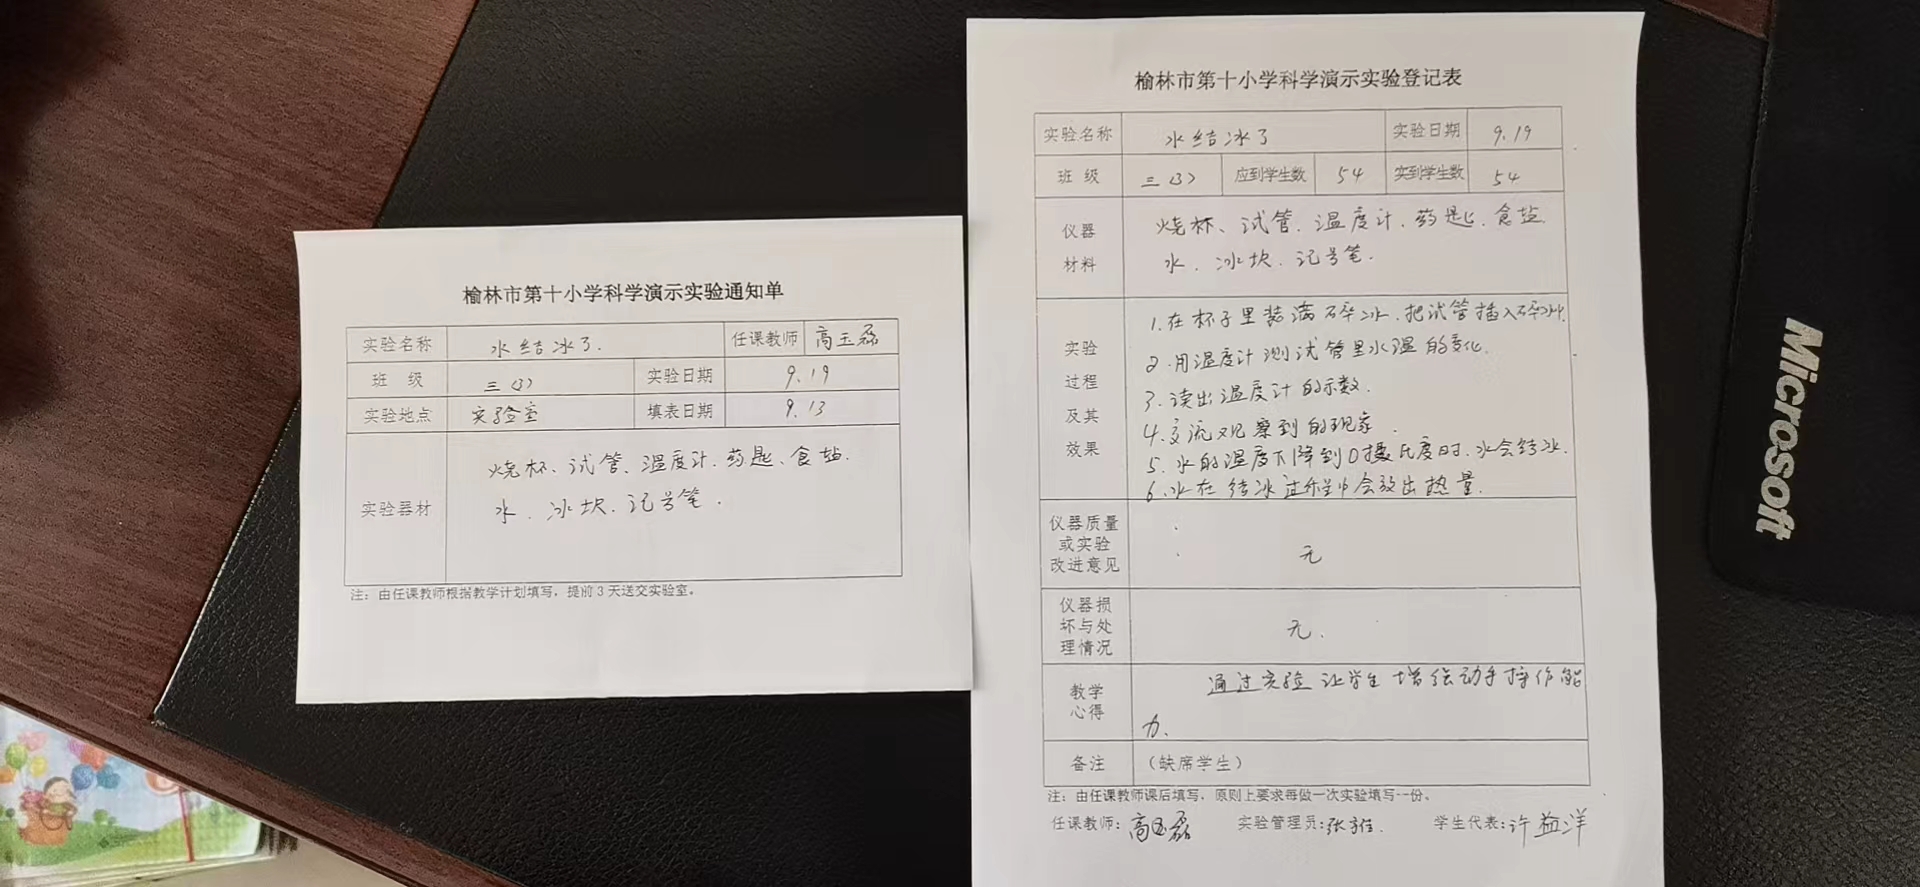 榆林市第十小学科学演示实验通知单
实验名称 水结冰了. 任课教师 高玉磊
班 级 三(3) 实验日期 9.19
实验地点 实验室 填表日期 9.13
实验器材
烧杯、试管、温度计、药匙、食盐.
水、冰块、记号笔.
注：由任课教师根据教学计划填写，提前3天送交实验室。
榆林市第十小学科学演示实验登记表
实验名称 水结冰了 实验日期 9.19
班 级 三(3) 应到学生数 54 实到学生数 54
仪器
材料
烧杯、试管、温度计、药匙、食盐.
水、冰块、记号笔.
实验
过程
及其
效果
1.在杯子里装满碎冰.把试管插入碎冰.
2.用温度计测试管里水温的变化.
3.读出温度计的示数.
4.交流观察到的现象.
5.水的温度下降到0摄氏度时.水会结冰.
6.水在结冰过程中会放出热量.
仪器质量
或实验
改进意见
无
仪器损
坏与处
理情况
无.
教学
心得
通过实验让学生增强动手操作能
力.
备注 （缺席学生）
注：由任课教师课后填写，原则上要求每做一次实验填写一份。
任课教师：高玉磊 实验管理员：张 学生代表：许益洋
Microsoft